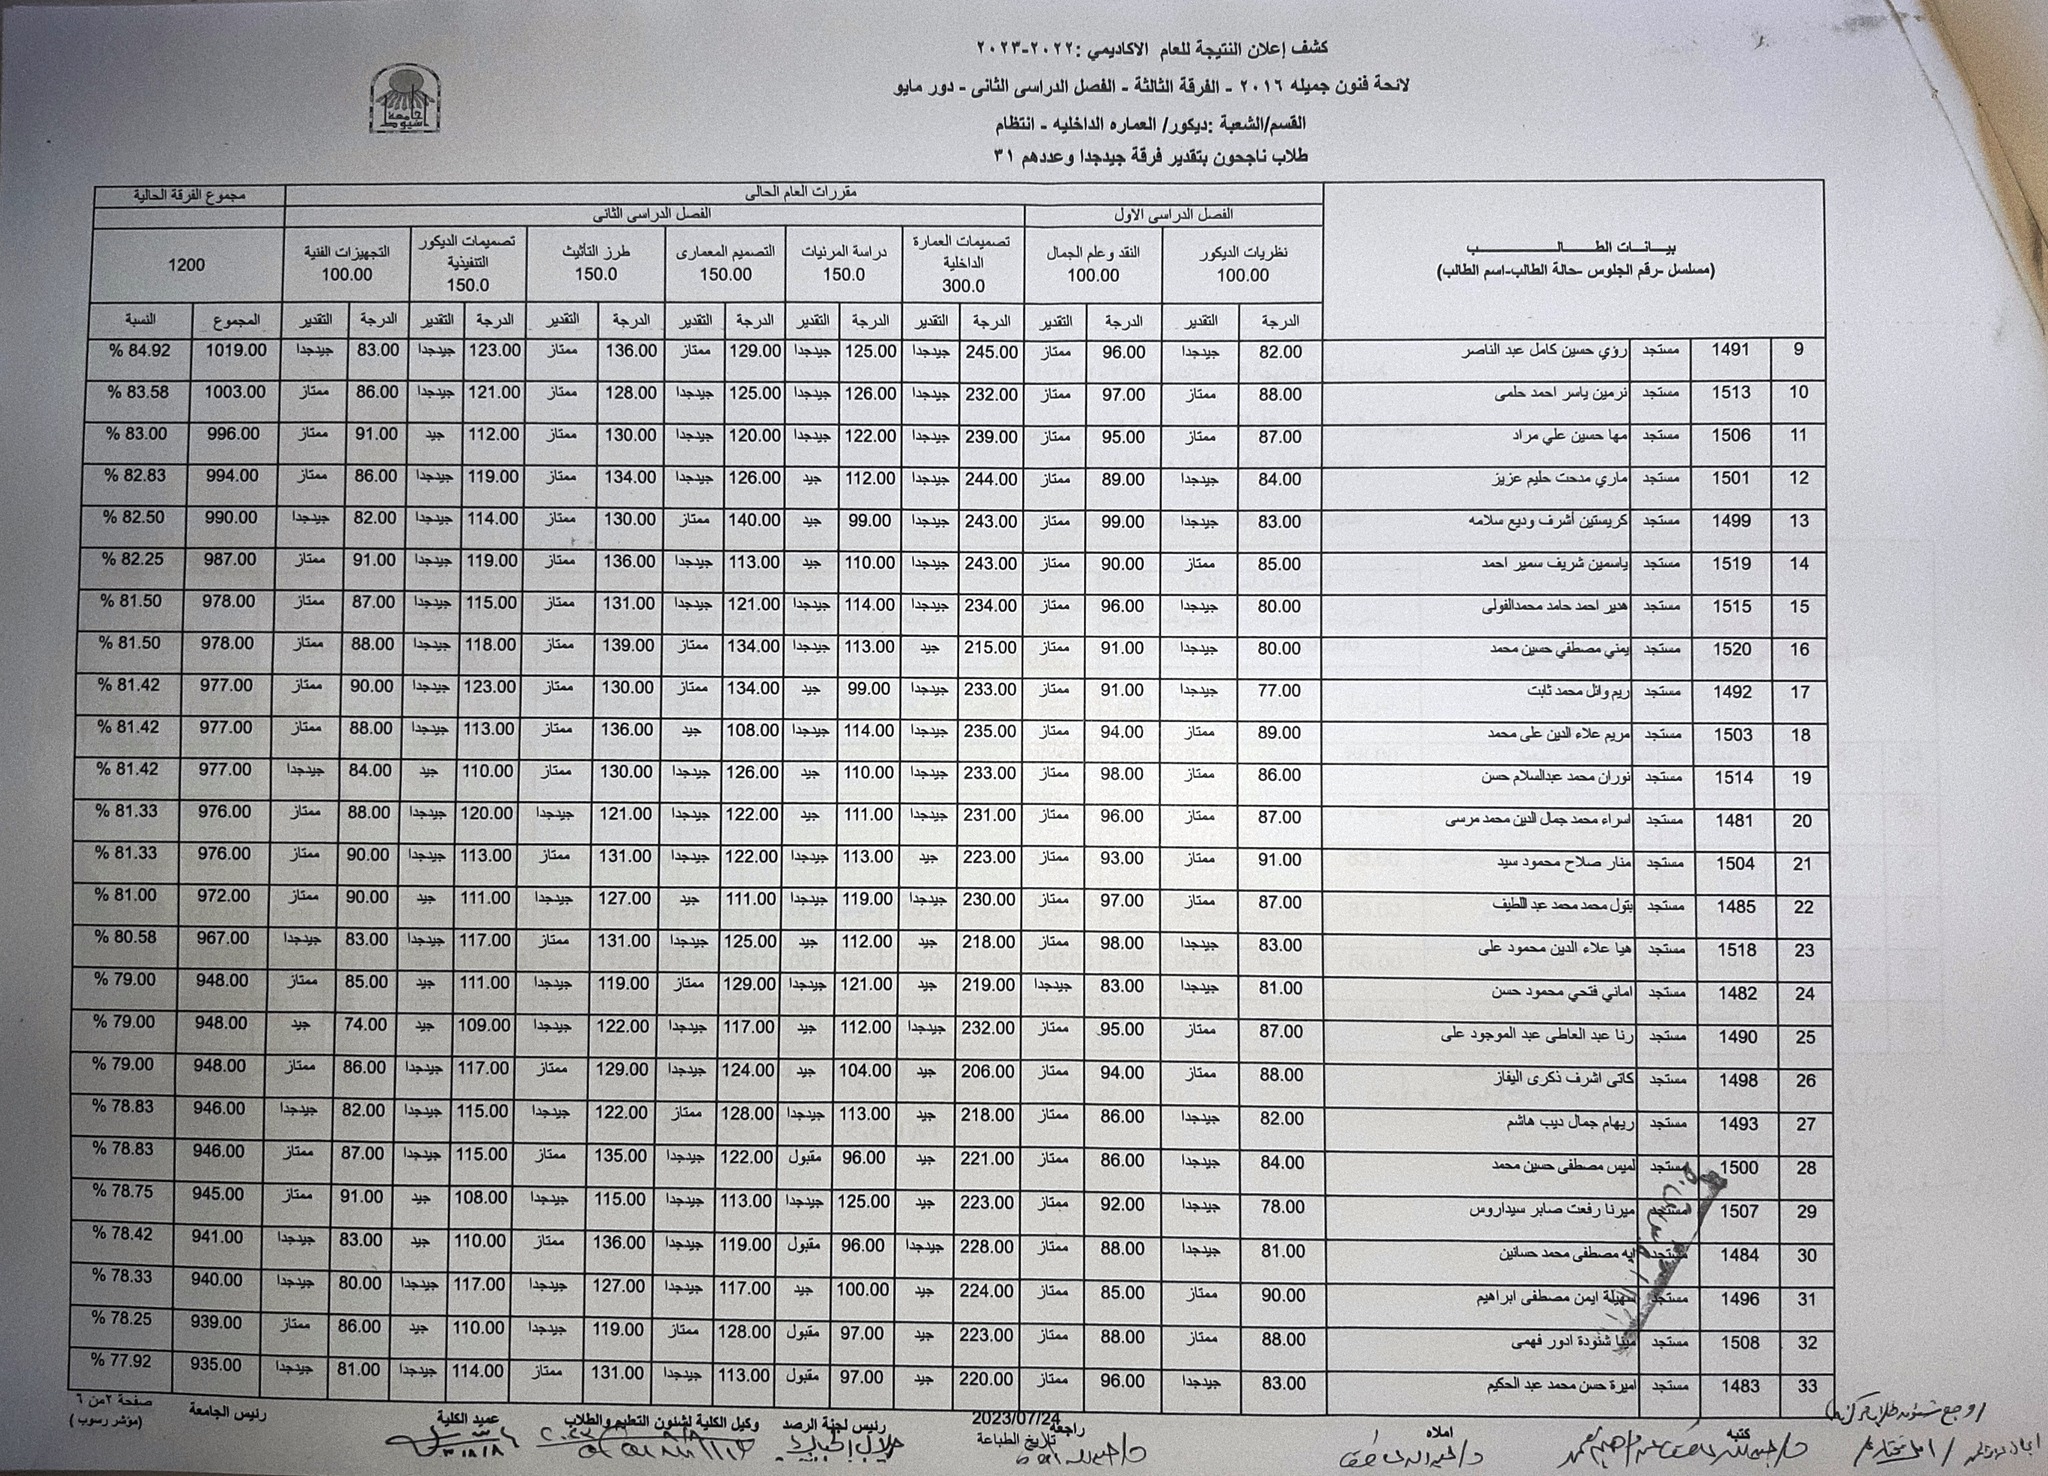 كشف إعلان النتيجة للعام الاكاديمي :٢٠٢٢-٢٠٢٣
لائحة فنون جميله ٢٠١٦ - الفرقة الثالثة - الفصل الدراسى الثانى - دور مايو
القسم/الشعبة :ديكور/ العماره الداخليه - انتظام
طلاب ناجحون بتقدير فرقة جيدجدا وعددهم ٣١
جامعة أسيوط
بيانات الطالب مقررات العام الحالى مجموع الفرقة الحالية
(مسلسل -رقم الجلوس -حالة الطالب-اسم الطالب) الفصل الدراسى الاول الفصل الدراسى الثانى
نظريات الديكور 100.00 النقد وعلم الجمال 100.00 تصميمات العمارة الداخلية 300.0 دراسة المرئيات 150.0 التصميم المعمارى 150.00 طرز التأثيث 150.0 تصميمات الديكور التنفيذية 150.0 التجهيزات الفنية 100.00 1200
الدرجة التقدير الدرجة التقدير الدرجة التقدير الدرجة التقدير الدرجة التقدير الدرجة التقدير الدرجة التقدير الدرجة التقدير المجموع النسبة
9 1491 مستجد رؤي حسين كامل عبد الناصر 82.00 جيدجدا 96.00 ممتاز 245.00 جيدجدا 125.00 جيدجدا 129.00 ممتاز 136.00 ممتاز 123.00 جيدجدا 83.00 جيدجدا 1019.00 84.92 %
10 1513 مستجد نرمين ياسر احمد حلمى 88.00 ممتاز 97.00 ممتاز 232.00 جيدجدا 126.00 جيدجدا 125.00 جيدجدا 128.00 ممتاز 121.00 جيدجدا 86.00 ممتاز 1003.00 83.58 %
11 1506 مستجد مها حسين علي مراد 87.00 ممتاز 95.00 ممتاز 239.00 جيدجدا 122.00 جيدجدا 120.00 جيدجدا 130.00 ممتاز 112.00 جيد 91.00 ممتاز 996.00 83.00 %
12 1501 مستجد ماري مدحت حليم عزيز 84.00 جيدجدا 89.00 ممتاز 244.00 جيدجدا 112.00 جيد 126.00 جيدجدا 134.00 ممتاز 119.00 جيدجدا 86.00 ممتاز 994.00 82.83 %
13 1499 مستجد كريستين أشرف وديع سلامه 83.00 جيدجدا 99.00 ممتاز 243.00 جيدجدا 99.00 جيد 140.00 ممتاز 130.00 ممتاز 114.00 جيدجدا 82.00 جيدجدا 990.00 82.50 %
14 1519 مستجد ياسمين شريف سمير احمد 85.00 ممتاز 90.00 ممتاز 243.00 جيدجدا 110.00 جيد 113.00 جيدجدا 136.00 ممتاز 119.00 جيدجدا 91.00 ممتاز 987.00 82.25 %
15 1515 مستجد هدير احمد حامد محمدالفولى 80.00 جيدجدا 96.00 ممتاز 234.00 جيدجدا 114.00 جيدجدا 121.00 جيدجدا 131.00 ممتاز 115.00 جيدجدا 87.00 ممتاز 978.00 81.50 %
16 1520 مستجد يمني مصطفي حسين محمد 80.00 جيدجدا 91.00 ممتاز 215.00 جيد 113.00 جيدجدا 134.00 ممتاز 139.00 ممتاز 118.00 جيدجدا 88.00 ممتاز 978.00 81.50 %
17 1492 مستجد ريم وائل محمد ثابت 77.00 جيدجدا 91.00 ممتاز 233.00 جيدجدا 99.00 جيد 134.00 ممتاز 130.00 ممتاز 123.00 جيدجدا 90.00 ممتاز 977.00 81.42 %
18 1503 مستجد مريم علاء الدين على محمد 89.00 ممتاز 94.00 ممتاز 235.00 جيدجدا 114.00 جيدجدا 108.00 جيد 136.00 ممتاز 113.00 جيدجدا 88.00 ممتاز 977.00 81.42 %
19 1514 مستجد نوران محمد عبدالسلام حسن 86.00 ممتاز 98.00 ممتاز 233.00 جيدجدا 110.00 جيد 126.00 جيدجدا 130.00 ممتاز 110.00 جيد 84.00 جيدجدا 977.00 81.42 %
20 1481 مستجد اسراء محمد جمال الدين محمد مرسى 87.00 ممتاز 96.00 ممتاز 231.00 جيدجدا 111.00 جيد 122.00 جيدجدا 121.00 جيدجدا 120.00 جيدجدا 88.00 ممتاز 976.00 81.33 %
21 1504 مستجد منار صلاح محمود سيد 91.00 ممتاز 93.00 ممتاز 223.00 جيد 113.00 جيدجدا 122.00 جيدجدا 131.00 ممتاز 113.00 جيدجدا 90.00 ممتاز 976.00 81.33 %
22 1485 مستجد بتول محمد محمد عبد اللطيف 87.00 ممتاز 97.00 ممتاز 230.00 جيدجدا 119.00 جيدجدا 111.00 جيد 127.00 جيدجدا 111.00 جيد 90.00 ممتاز 972.00 81.00 %
23 1518 مستجد هيا علاء الدين محمود على 83.00 جيدجدا 98.00 ممتاز 218.00 جيد 112.00 جيد 125.00 جيدجدا 131.00 ممتاز 117.00 جيدجدا 83.00 جيدجدا 967.00 80.58 %
24 1482 مستجد اماني فتحي محمود حسن 81.00 جيدجدا 83.00 جيدجدا 219.00 جيد 121.00 جيدجدا 129.00 ممتاز 119.00 جيدجدا 111.00 جيد 85.00 ممتاز 948.00 79.00 %
25 1490 مستجد رنا عبد العاطى عبد الموجود على 87.00 ممتاز 95.00 ممتاز 232.00 جيدجدا 112.00 جيد 117.00 جيدجدا 122.00 جيدجدا 109.00 جيد 74.00 جيد 948.00 79.00 %
26 1498 مستجد كاتى اشرف ذكرى اليفاز 88.00 ممتاز 94.00 ممتاز 206.00 جيد 104.00 جيد 124.00 جيدجدا 129.00 ممتاز 117.00 جيدجدا 86.00 ممتاز 948.00 79.00 %
27 1493 مستجد ريهام جمال ديب هاشم 82.00 جيدجدا 86.00 ممتاز 218.00 جيد 113.00 جيدجدا 128.00 ممتاز 122.00 جيدجدا 115.00 جيدجدا 82.00 جيدجدا 946.00 78.83 %
28 1500 مستجد لميس مصطفى حسين محمد 84.00 جيدجدا 86.00 ممتاز 221.00 جيد 96.00 مقبول 122.00 جيدجدا 135.00 ممتاز 115.00 جيدجدا 87.00 ممتاز 946.00 78.83 %
29 1507 مستجد ميرنا رفعت صابر سيداروس 78.00 جيدجدا 92.00 ممتاز 223.00 جيد 125.00 جيدجدا 113.00 جيدجدا 115.00 جيدجدا 108.00 جيد 91.00 ممتاز 945.00 78.75 %
30 1484 مستجد ايه مصطفى محمد حسانين 81.00 جيدجدا 88.00 ممتاز 228.00 جيدجدا 96.00 مقبول 119.00 جيدجدا 136.00 ممتاز 110.00 جيد 83.00 جيدجدا 941.00 78.42 %
31 1496 مستجد سهيلة ايمن مصطفى ابراهيم 90.00 ممتاز 85.00 ممتاز 224.00 جيد 100.00 جيد 117.00 جيدجدا 127.00 جيدجدا 117.00 جيدجدا 80.00 جيدجدا 940.00 78.33 %
32 1508 مستجد شنودة ادور فهمى 88.00 ممتاز 88.00 ممتاز 223.00 جيد 97.00 مقبول 128.00 ممتاز 119.00 جيدجدا 110.00 جيد 86.00 ممتاز 939.00 78.25 %
33 1483 مستجد اميرة حسن محمد عبد الحكيم 83.00 جيدجدا 96.00 ممتاز 220.00 جيد 97.00 مقبول 113.00 جيدجدا 131.00 ممتاز 114.00 جيدجدا 81.00 جيدجدا 935.00 77.92 %
كتبه املاه راجعة 2023/07/24 تاريخ الطباعة رئيس لجنة الرصد وكيل الكلية لشئون التعليم والطلاب عميد الكلية رئيس الجامعة صفحة ٢من ٦
(مؤشر رسوب )